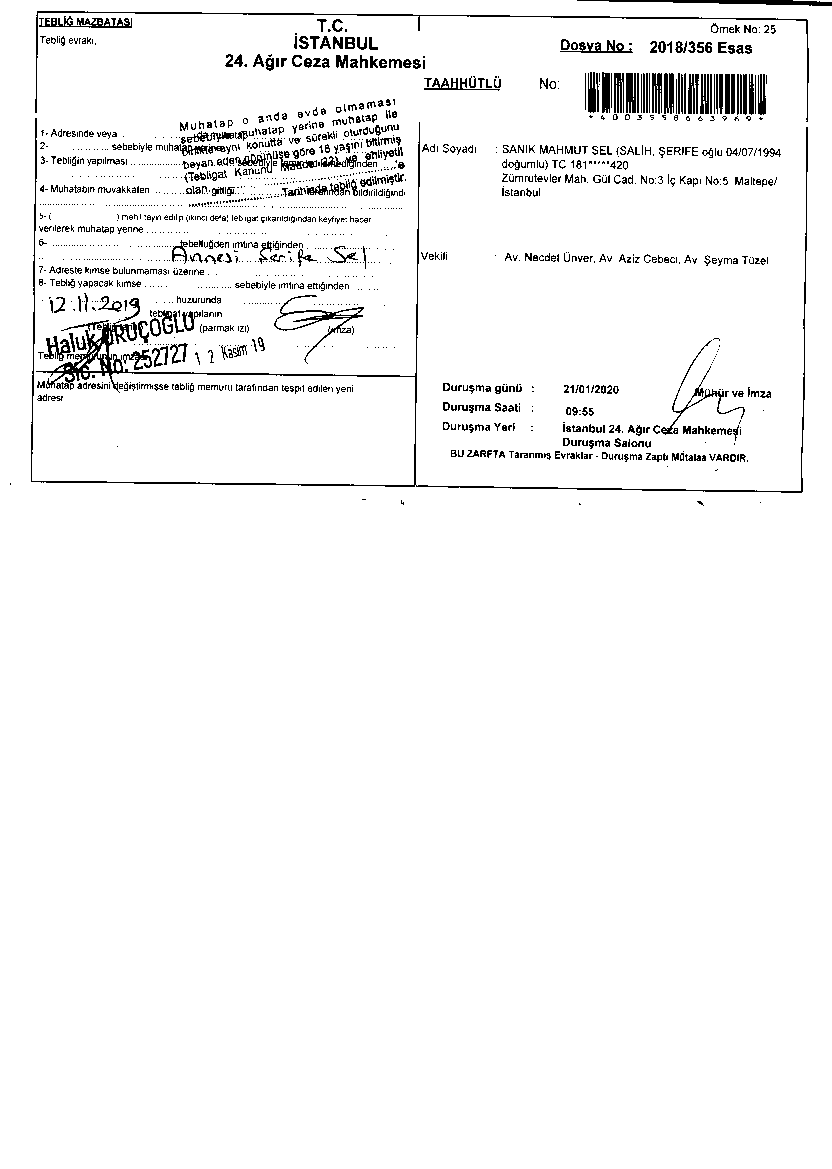 TEBLİĞ MAZBATASI
Tebliğ evrakı,
T.C.
İSTANBUL
24. Ağır Ceza Mahkemesi
Örnek No: 25
Dosya No : 2018/356 Esas
TAAHHÜTLÜ No:
*6003958663969*
Muhatap o anda evde olmaması
sebebiyle muhatap yerine muhatap ile
birlikte aynı konutta ve sürekli oturduğunu
beyan eden görünüşe göre 18 yaşını bitirmiş
(Tebligat Kanunu Madde 22) ve ehliyetli
olan
Tarihinde tebliğ edilmiştir.
1- Adresinde veya
2- ............ sebebiyle muhatap
3- Tebliğin yapılması
4- Muhatabın muvakkaten
tarafından bildirildiğinden
5- ( ) mehil tayin edilip (ikinci defa) tebligat çıkarıldığından keyfiyet haber
verilerek muhatap yerine
6- tebellüğden imtina ettiğinden
Annesi Şerife Sel
7- Adreste kimse bulunmaması üzerine
8- Tebliğ yapacak kimse ...... sebebiyle imtina ettiğinden
12.11.2019 huzurunda
tebligat yapılanın
(parmak izi) (imza)
Haluk URUÇOĞLU
Sic. No: 252727
12 Kasım 19
Tebliğ memurunun imzası
Muhatap adresini değiştirmişse tebliğ memuru tarafından tespit edilen yeni
adresi
Adı Soyadı : SANIK MAHMUT SEL (SALİH, ŞERİFE oğlu 04/07/1994
doğumlu) TC 181*****420
Zümrütevler Mah. Gül Cad. No:3 İç Kapı No:5 Maltepe/
İstanbul
Vekili : Av. Necdet Ünver, Av. Aziz Cebeci, Av. Şeyma Tüzel
Duruşma günü : 21/01/2020
Mühür ve İmza
Duruşma Saati : 09:55
Duruşma Yeri : İstanbul 24. Ağır Ceza Mahkemesi
Duruşma Salonu
BU ZARFTA Taranmış Evraklar - Duruşma Zaptı Mütalaa VARDIR.